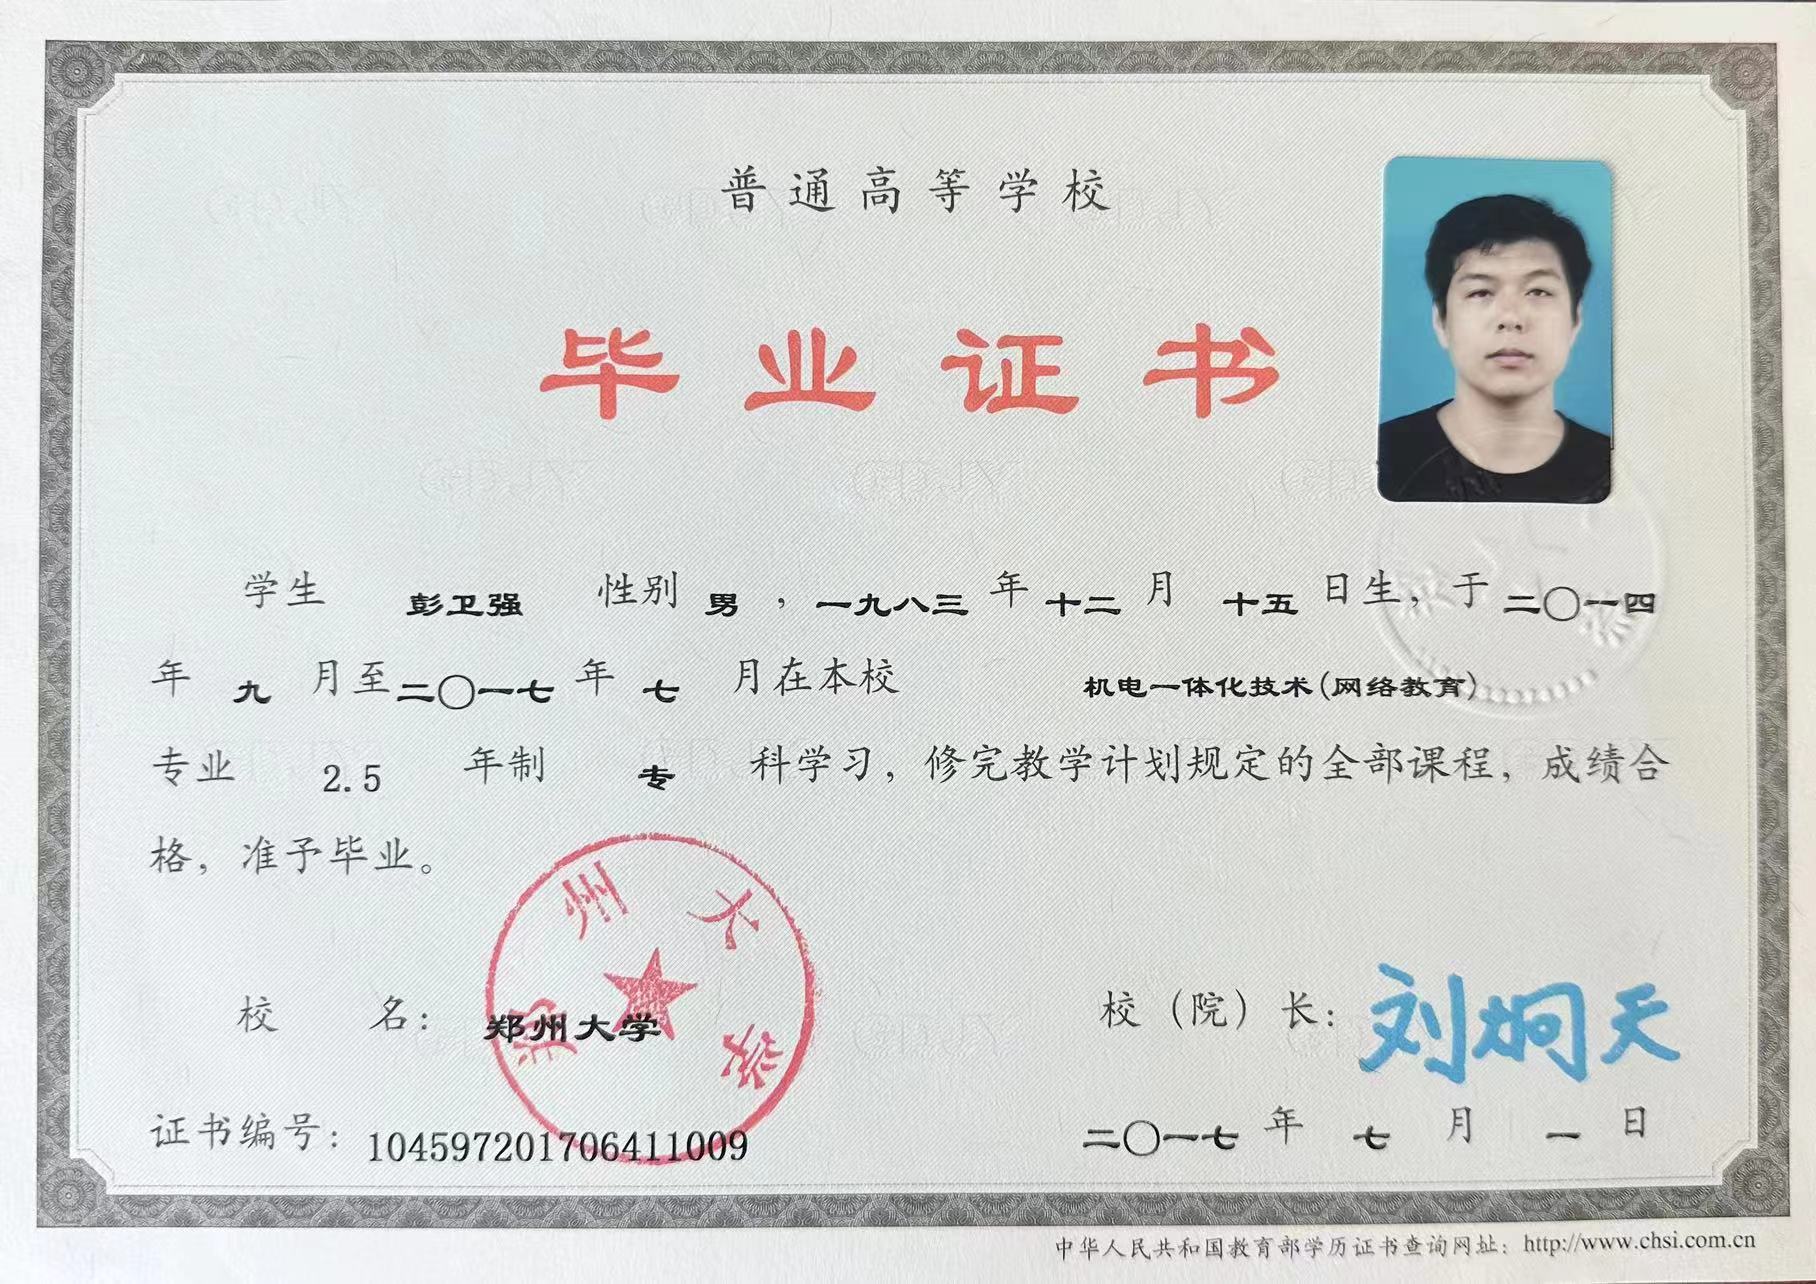 普通高等学校
毕业证书
学生 彭卫强 性别 男 ，一九八三 年 十二 月 十五 日生，于 二〇一四
年 九 月至 二〇一七 年 七 月在本校 机电一体化技术(网络教育)
专业 2.5 年制 专 科学习，修完教学计划规定的全部课程，成绩合
格，准予毕业。
郑州大学
校 名： 郑州大学
校（院）长：刘炯天
证书编号：104597201706411009
二〇一七 年 七 月 一 日
中华人民共和国教育部学历证书查询网址：http://www.chsi.com.cn